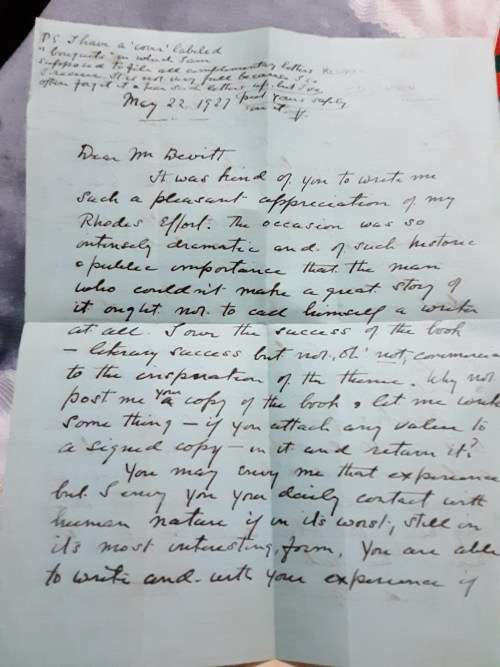 P.S. I have a "cover" labeled
"bouquets" in which I am
supposed to file all complimentary letters
I receive. It is not very full because I so
often forget it & tear such letters up. but I've
put yours safely
in it.
May 22. 1927
Dear Mr Devitt
It was kind of you to write me
such a pleasant appreciation of my
Rhodes Effort. The occasion was so
intensely dramatic and of such historic
& public importance that the man
who couldn't make a great story of
it ought not to call himself a writer
at all. I owe the success of the book
– literary success but not, oh! not, commercia
to the inspiration of the theme. Why not
post me your copy of the book & let me write
some thing – if you attach any value to
a signed copy – in it and return it?
You may envy me that experience
but I envy you your daily contact with
human nature if in its worst, still in
its most interesting, form. You are able
to write and with your experience if